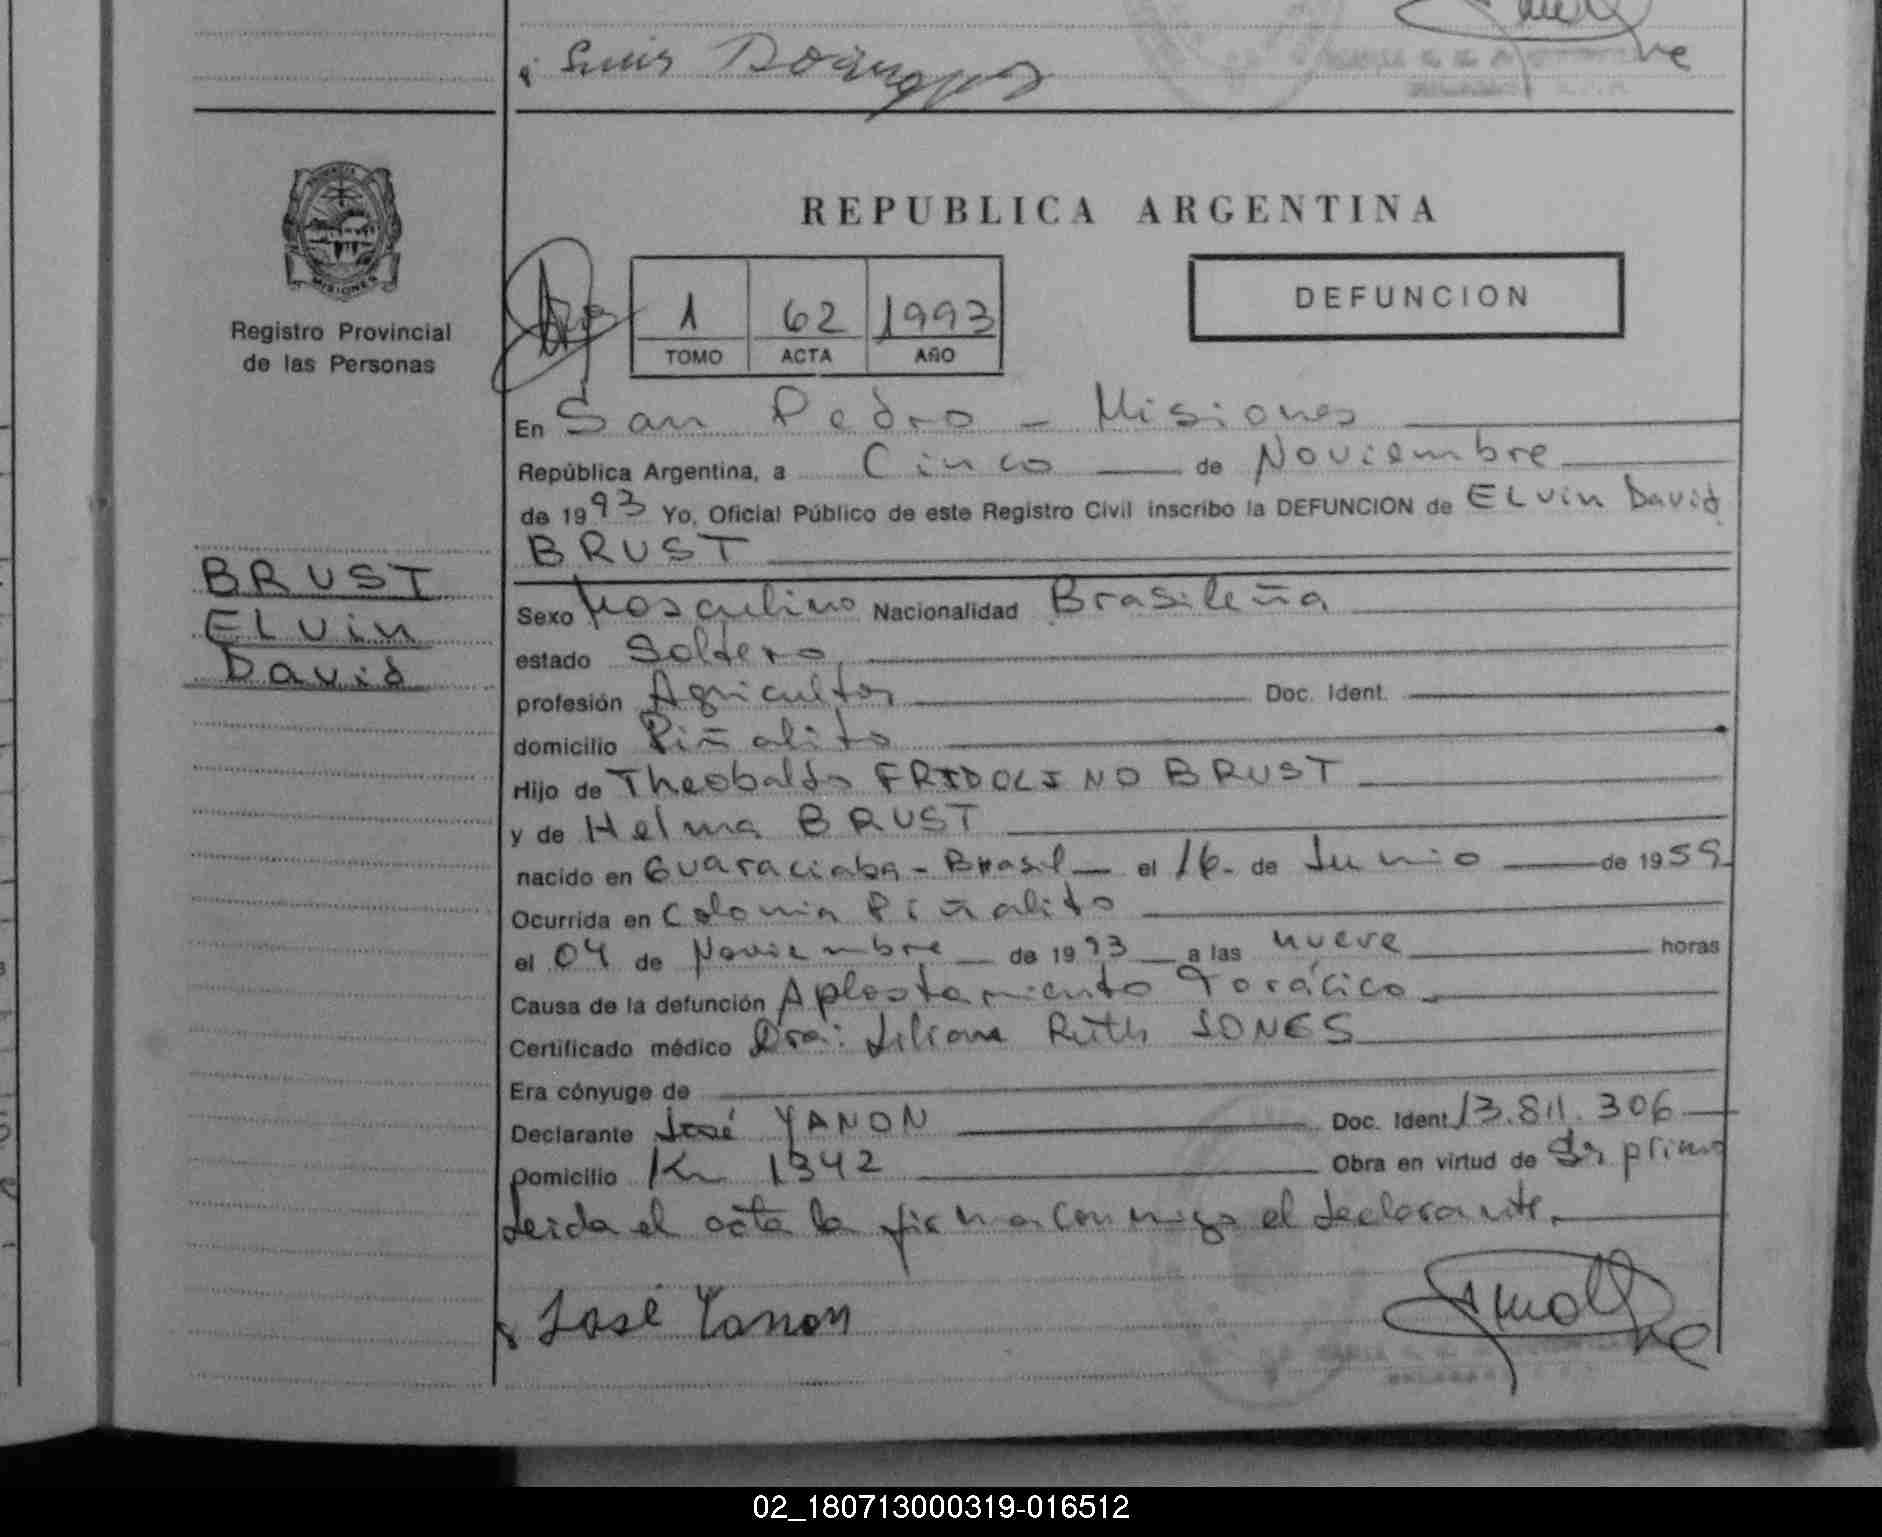 Luis
REPUBLICA ARGENTINA
MISIONES
Registro Provincial
de las Personas
1 62 1993
TOMO ACTA AÑO
DEFUNCION
En San Pedro - Misiones
República Argentina, a Cinco de Noviembre
de 1993 Yo, Oficial Público de este Registro Civil inscribo la DEFUNCION de ELvin David
BRUST
BRUST
ELvin
David
Sexo Masculino Nacionalidad Brasileña
estado Soltero
profesión Agricultor Doc. Ident.
domicilio Piñalito
Hijo de Theobaldo FRIDOLINO BRUST
y de Helma BRUST
nacido en Guaraciaba - Brasil el 16 de Junio de 1959
Ocurrida en Colonia Piñalito
el 04 de Noviembre de 1993 a las nueve horas
Causa de la defunción Aplastamiento Torácico
Certificado médico Dra: Liliana Ruth JONES
Era cónyuge de
Declarante José YANON Doc. Ident. 13.811.306
Domicilio Km 1342 Obra en virtud de Sr primo
Leida el acta la firma conmigo el declarante.
José Yanon
02_180713000319-016512